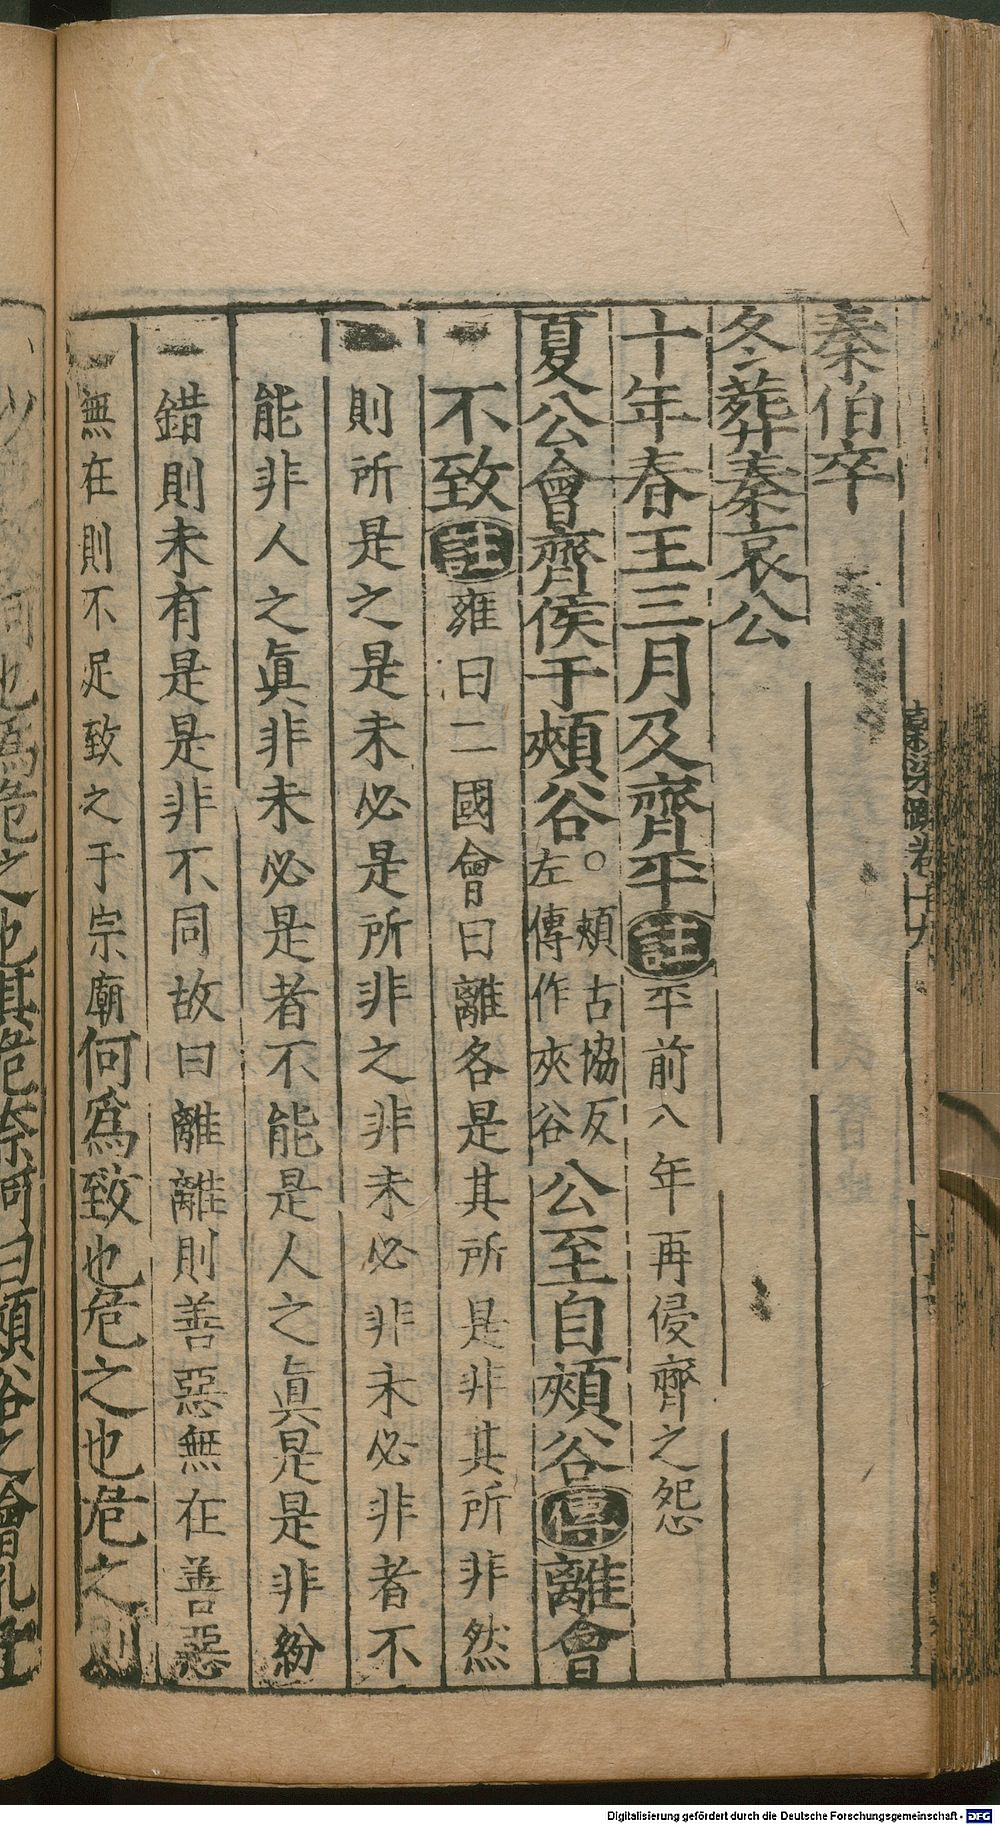 秦伯卒
冬葬秦哀公
十年春王三月及齊平註平前八年再侵齊之怨
夏公會齊侯于頰谷○頰古協反左傳作夾谷公至自頰谷傳離會
不致註雍曰二國會曰離各是其所是非其所非然
則所是之是未必是所非之非未必非未必非者不
能非人之眞非未必是者不能是人之眞是是非紛
錯則未有是是非不同故曰離離則善惡無在善惡
無在則不足致之于宗廟何爲致也危之也危之則
也爲危之也其危奈何曰頰谷之會孔
Digitalisierung gefördert durch die Deutsche Forschungsgemeinschaft - DFG